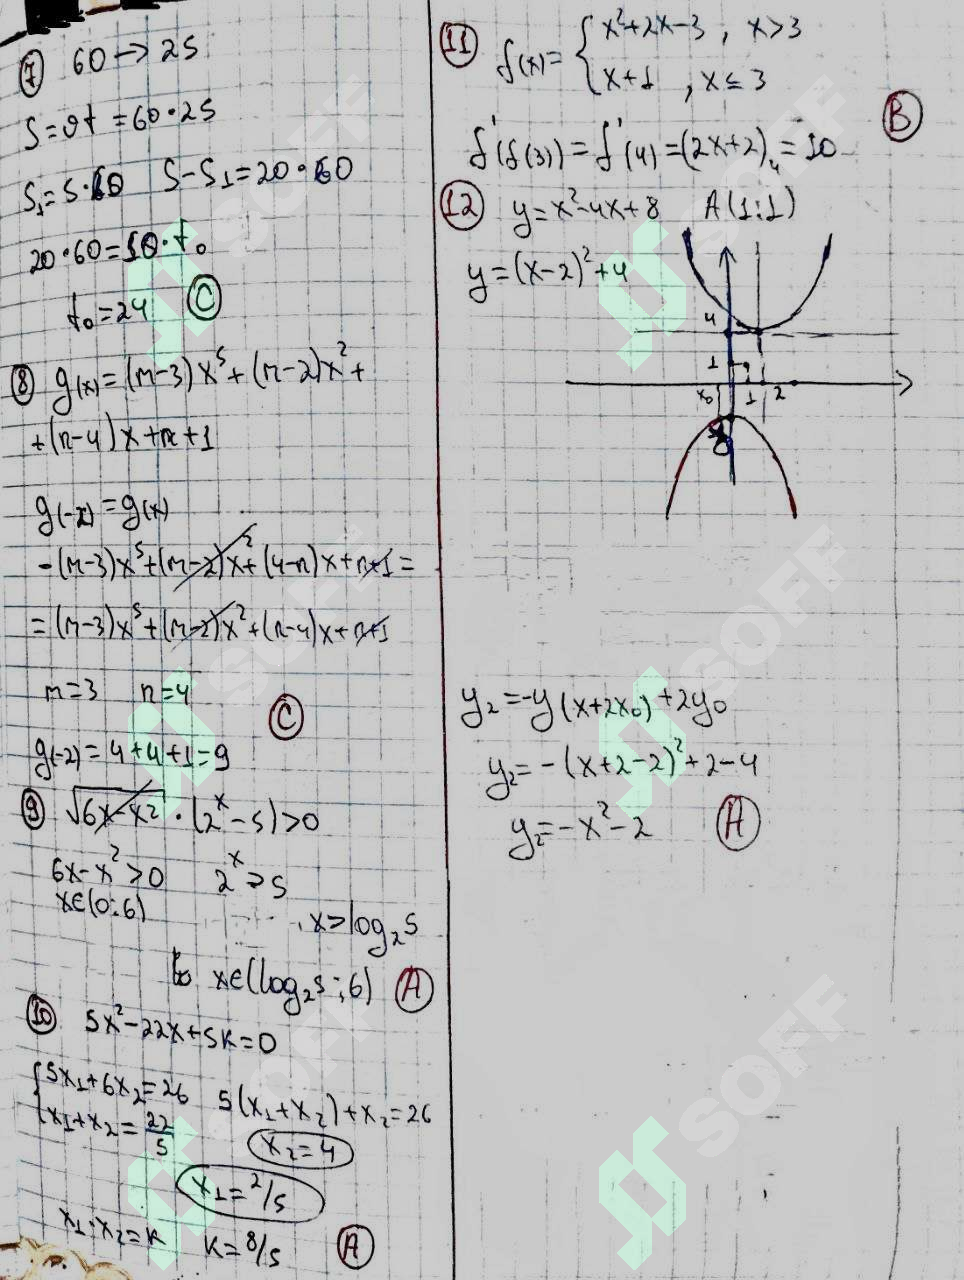 7 60 → 25
S=ϑt = 60·25
S₁=5·60 S-S₁=20·60
20·60=50·t₀
t₀=24 C
8 g(x)=(m-3)x⁵+(m-2)x²+
+(n-4)x+n+1
g(-x)=g(x)
-(m-3)x⁵+(m-2)x²+(4-n)x+n+1=
=(m-3)x⁵+(m-2)x²+(n-4)x+n+1
m=3 n=4
C
g(-2)=4+4+1=9
9 √(6x-x²)·(2ˣ-5)>0
6x-x²>0 2ˣ>5
x∈(0;6)
x>log₂5
x∈(log₂5;6) A
10 5x²-22x+5k=0
{5x₁+6x₂=26 5(x₁+x₂)+x₂=26
x₁+x₂=22/5
x₂=4
x₁=2/5
x₁·x₂=k k=8/5 A
11 f(x)={x²+2x-3, x>3
x+1, x≤3
B
f'(f(3))=f'(4)=(2x+2)₄=10
12 y=x²-4x+8 A(1;1)
y=(x-2)²+4
4
1
x₀ 1 2
y₂=-y(x+2x₀)+2y₀
y₂=-(x+2-2)²+2-4
y₂=-x²-2 A
SOFF
SOFF
SOFF
SOFF
SOFF
SOFF